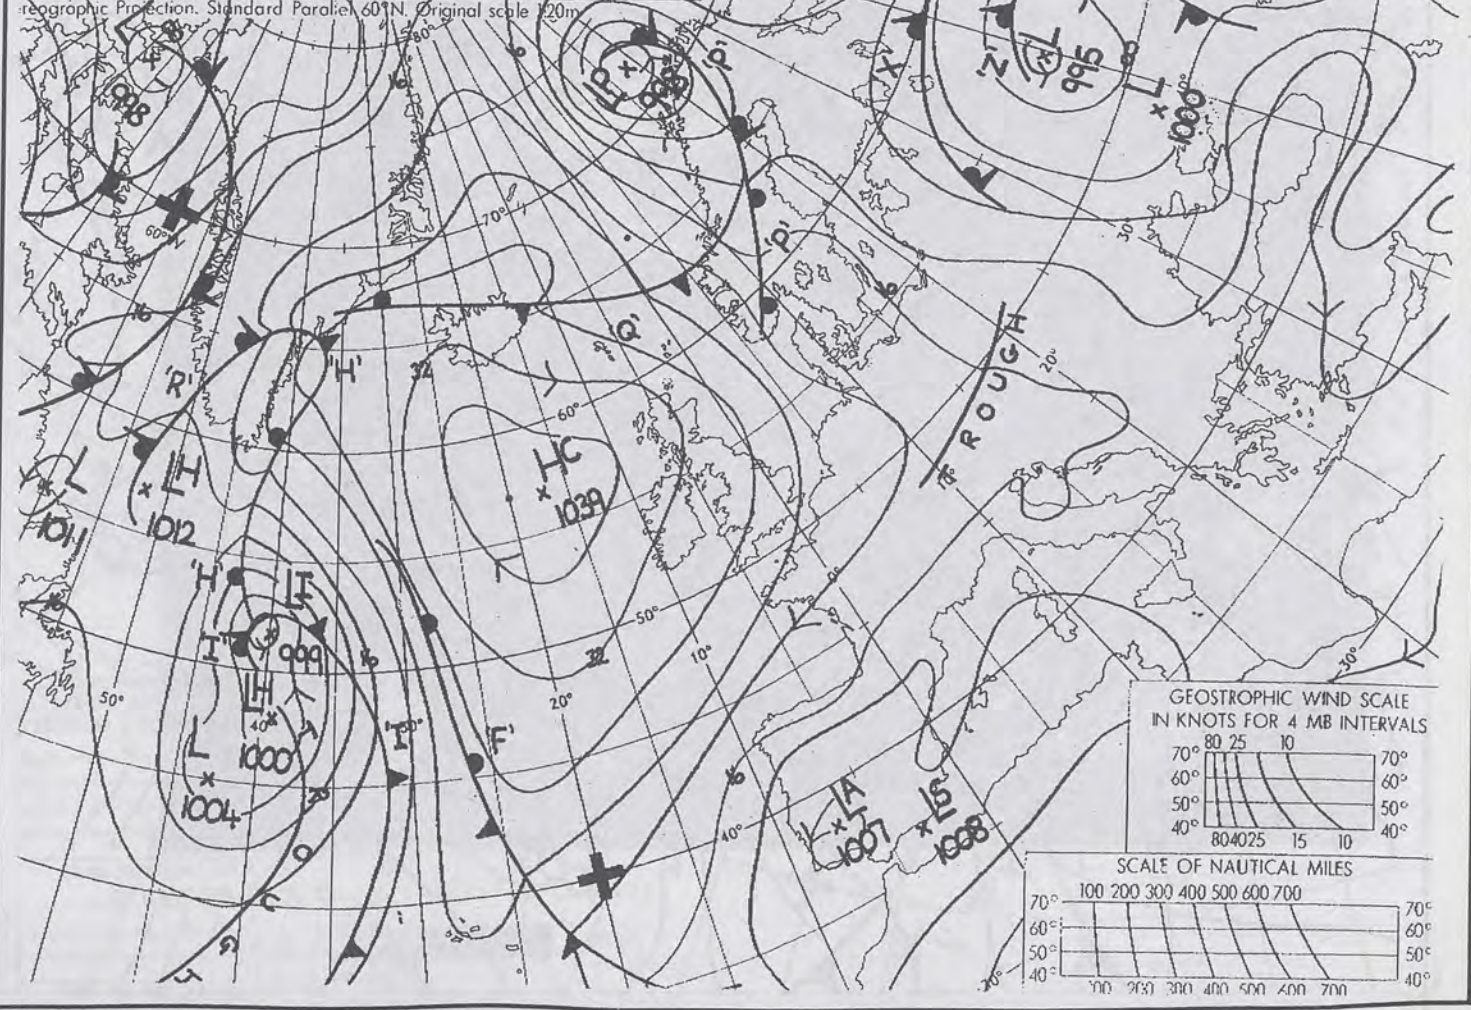 reographic Projection. Standard Parallel 60°N. Original scale 1:20m
80°
998
16
'P'
'X'
'Z'
L
995
8
L
1000
60°N
70°
'P'
30°
16
16
'R'
'H'
32
'Q'
TROUGH
20°
60°
HC
1039
L
1011
LH
1012
'H'
LI
999
I
16
LH
40°
1000
L
1004
50°
50°
0°
32
10°
20°
'I'
'F'
20
16
40°
LA
L
1007
LS
1008
30°
GEOSTROPHIC WIND SCALE
IN KNOTS FOR 4 MB INTERVALS
80 25 10
70° 70°
60° 60°
50° 50°
40° 40°
80 40 25 15 10
SCALE OF NAUTICAL MILES
100 200 300 400 500 600 700
70° 70°
60° 60°
50° 50°
40° 40°
100 200 300 400 500 600 700